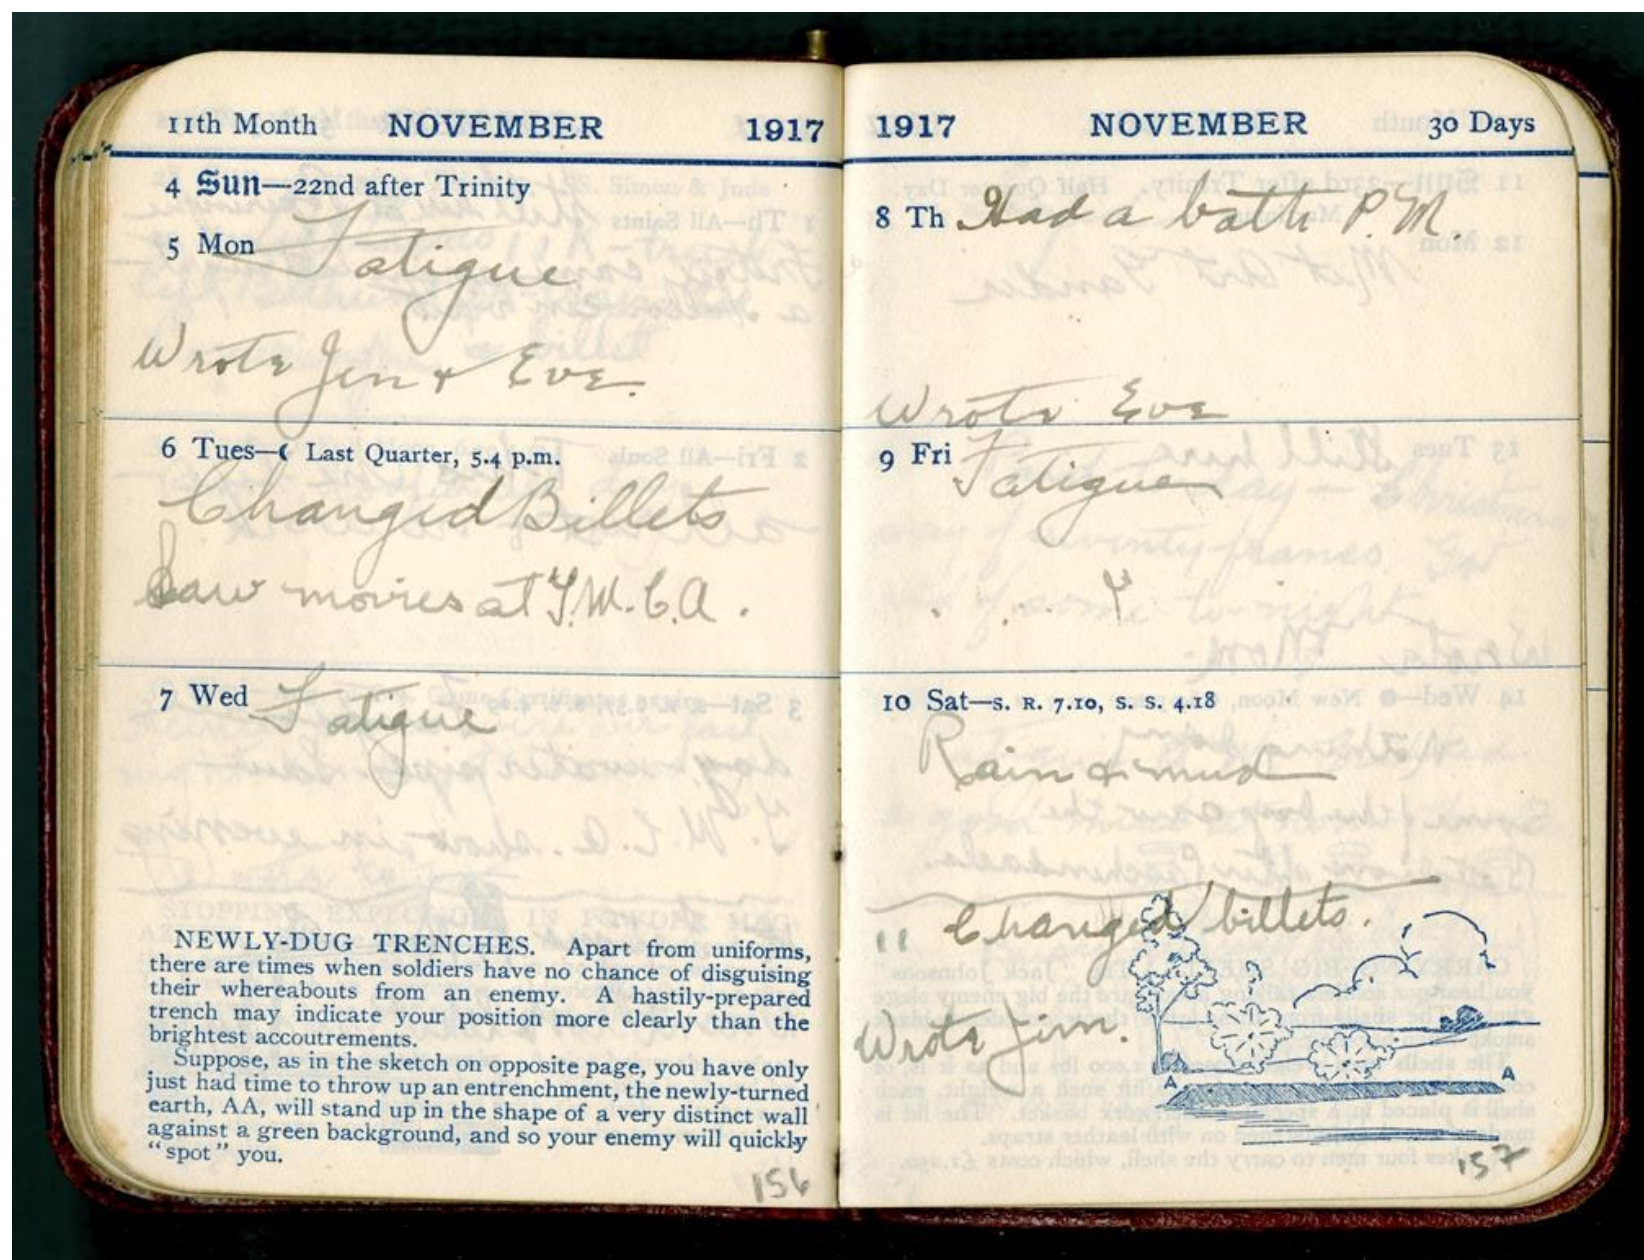 11th Month NOVEMBER 1917
4 Sun—22nd after Trinity
5 Mon Fatigue
Wrote Jen & Eve.
6 Tues—☾ Last Quarter, 5.4 p.m.
Changed Billets
Saw movies at Y.M.C.A.
7 Wed Fatigue
NEWLY-DUG TRENCHES. Apart from uniforms,
there are times when soldiers have no chance of disguising
their whereabouts from an enemy. A hastily-prepared
trench may indicate your position more clearly than the
brightest accoutrements.
Suppose, as in the sketch on opposite page, you have only
just had time to throw up an entrenchment, the newly-turned
earth, AA, will stand up in the shape of a very distinct wall
against a green background, and so your enemy will quickly
"spot" you.
156
1917 NOVEMBER 30 Days
8 Th Had a bath P.M.
Wrote Eve
9 Fri Fatigue
10 Sat—S. R. 7.10, S. S. 4.18
Rain & mud
" Changed billets.
Wrote Jim.
A A
157